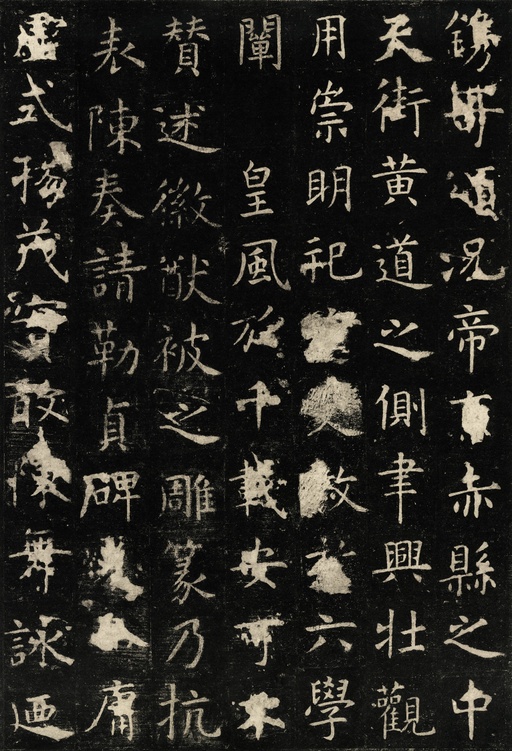 鐫頌況帝赤縣之中
天街黃道之側聿興壯觀
用崇明祀文教六學
闡皇風於千載安可不
贊述徽猷被之雕篆乃抗
表陳奏請勒貞碑庸
虛式揚茂實敢陳舞詠廼